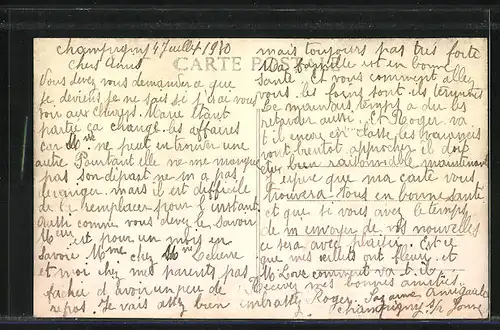 Champigny 4 Juillet 1910
CARTE POSTALE
Chers Amis
Vous devez vous demander ce que
je deviens je ne sais si j'irai vous
voir aux Marie étant
partie ça change les affaires
car ne peut en trouver une
autre Pourtant elle ne me manque
pas son départ ne m'a pas
déranger mais il est difficile
de l remplacer pour l'instant
Aussi comme vous devez le savoir
est pour un mois en
Savoie Mme chez
et moi chez mes parents pas
fachée d'avoir un peu de
repos. Je vais assez bien
mais toujours pas très forte
Ma famille est en bonne
santé. Et vous comment allez
vous. les foins sont ils terminés
Le mauvais temps a du les
retarder aussi. Et Roger va
t'il encore en classe, les vacances
vont bientot approcher il doit
être bien raisonnable maintenant
J'espère que ma carte vous
trouvera tous en bonne santé
et que si vous avez le temps
de m envoyer de vos nouvelles
ce sera avec plaisir. Est ce
que mes œillets ont fleuri et
M comment va t il
Recevez mes bonnes amitiés
embrassez Roger. Suzanne
Champigny s/ Yonne